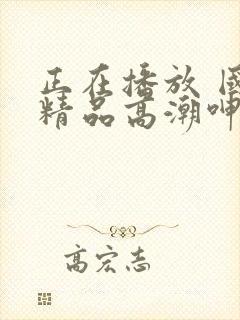 正在播放 國
精品高潮呻
高宏志